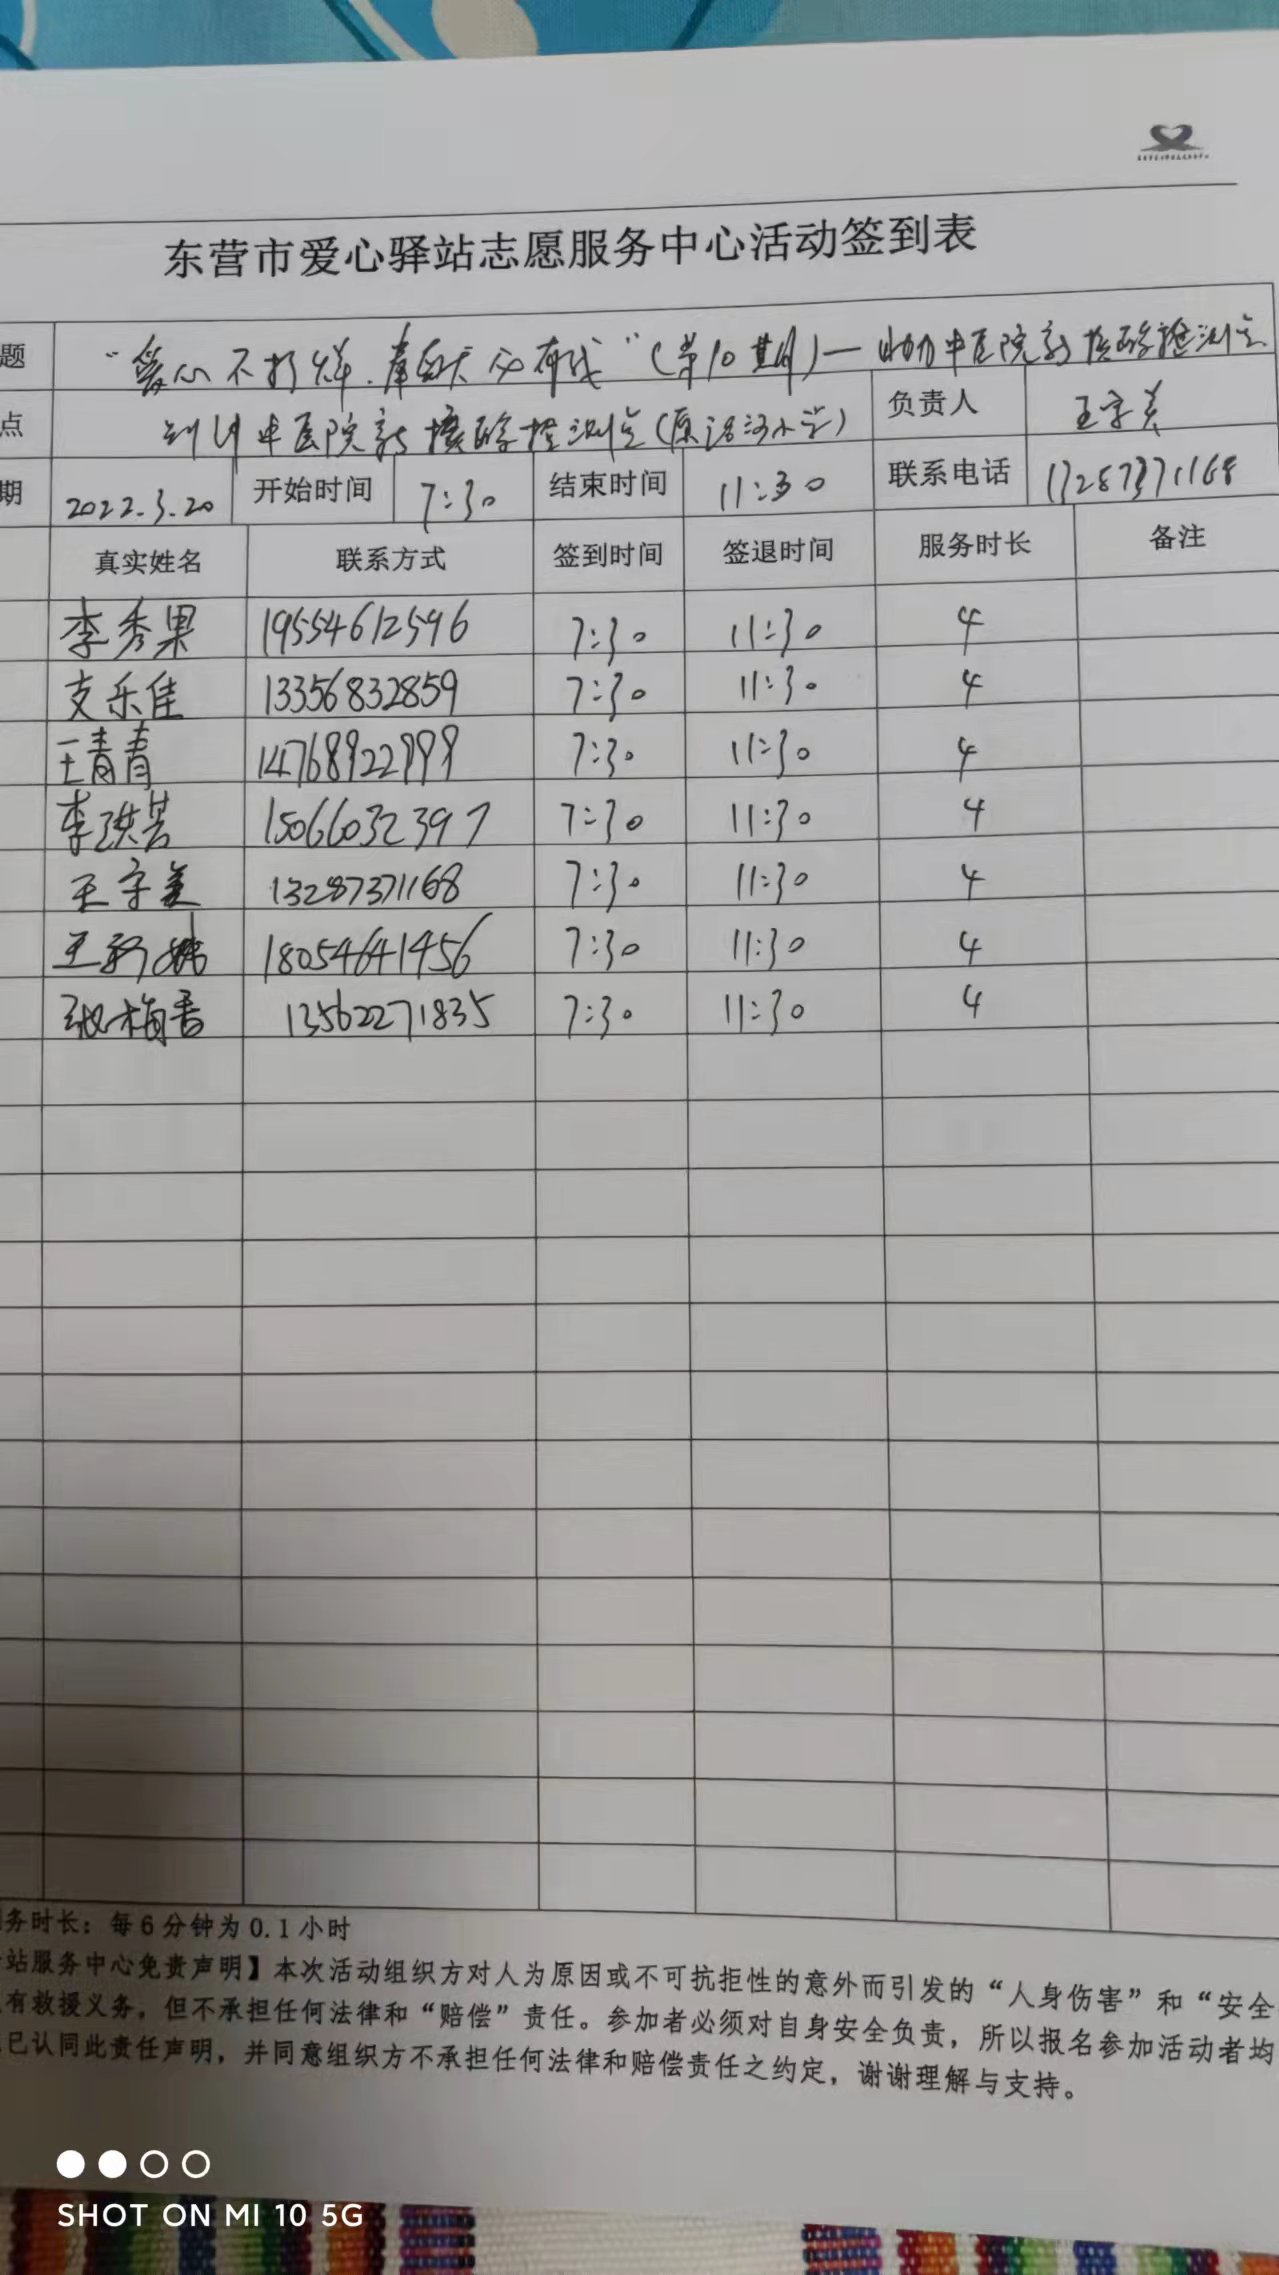 东营市爱心驿站志愿服务中心活动签到表
题 “爱心不打烊，奉献天必有我”（第10期）— 中医院新核酸检测点
点 中医院新核酸检测点（原 河小学） 负责人 王守美
期 2022.3.20 开始时间 7:30 结束时间 11:30 联系电话 13287371168
真实姓名 联系方式 签到时间 签退时间 服务时长 备注
李秀果 19554612596 7:30 11:30 4
支乐佳 13356832859 7:30 11:30 4
王青青 14768922999 7:30 11:30 4
李洪芸 15066032397 7:30 11:30 4
王守美 13287371168 7:30 11:30 4
王新 18054641456 7:30 11:30 4
张梅香 13562271835 7:30 11:30 4
务时长：每6分钟为0.1小时
站服务中心免责声明】本次活动组织方对人为原因或不可抗拒性的意外而引发的“人身伤害”和“安全
有救援义务，但不承担任何法律和“赔偿”责任。参加者必须对自身安全负责，所以报名参加活动者均
已认同此责任声明，并同意组织方不承担任何法律和赔偿责任之约定，谢谢理解与支持。
SHOT ON MI 10 5G